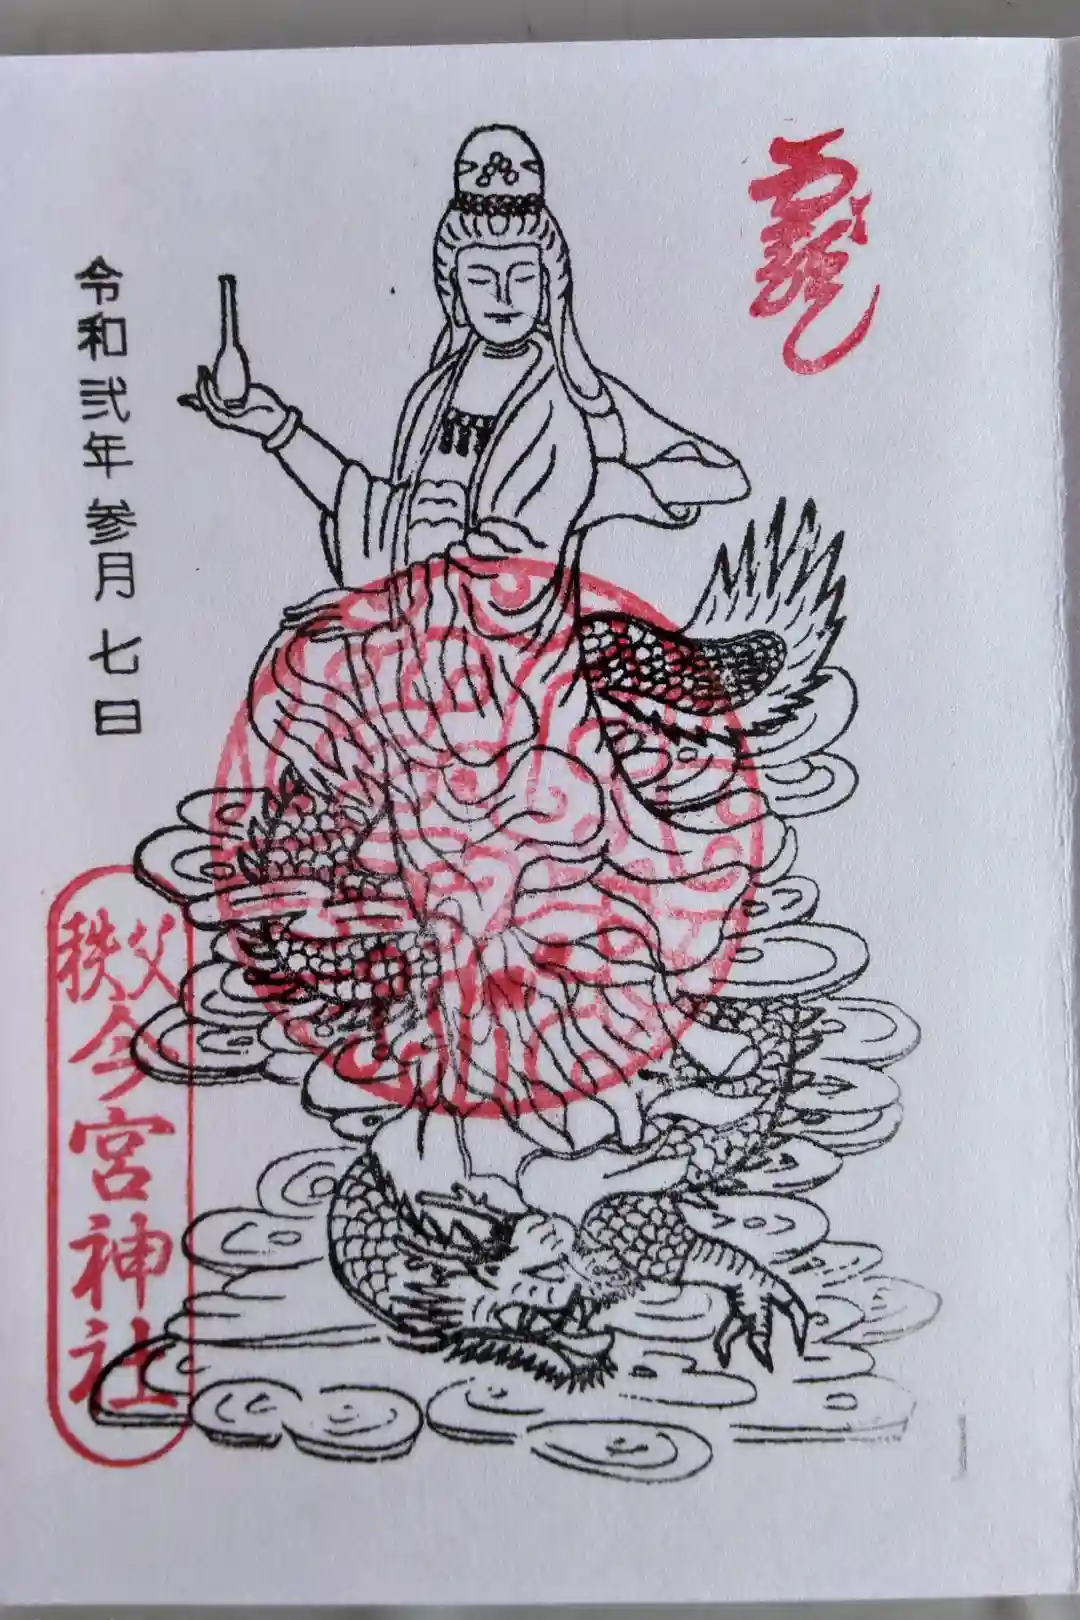 令和弐年参月七日
秩父今宮神社